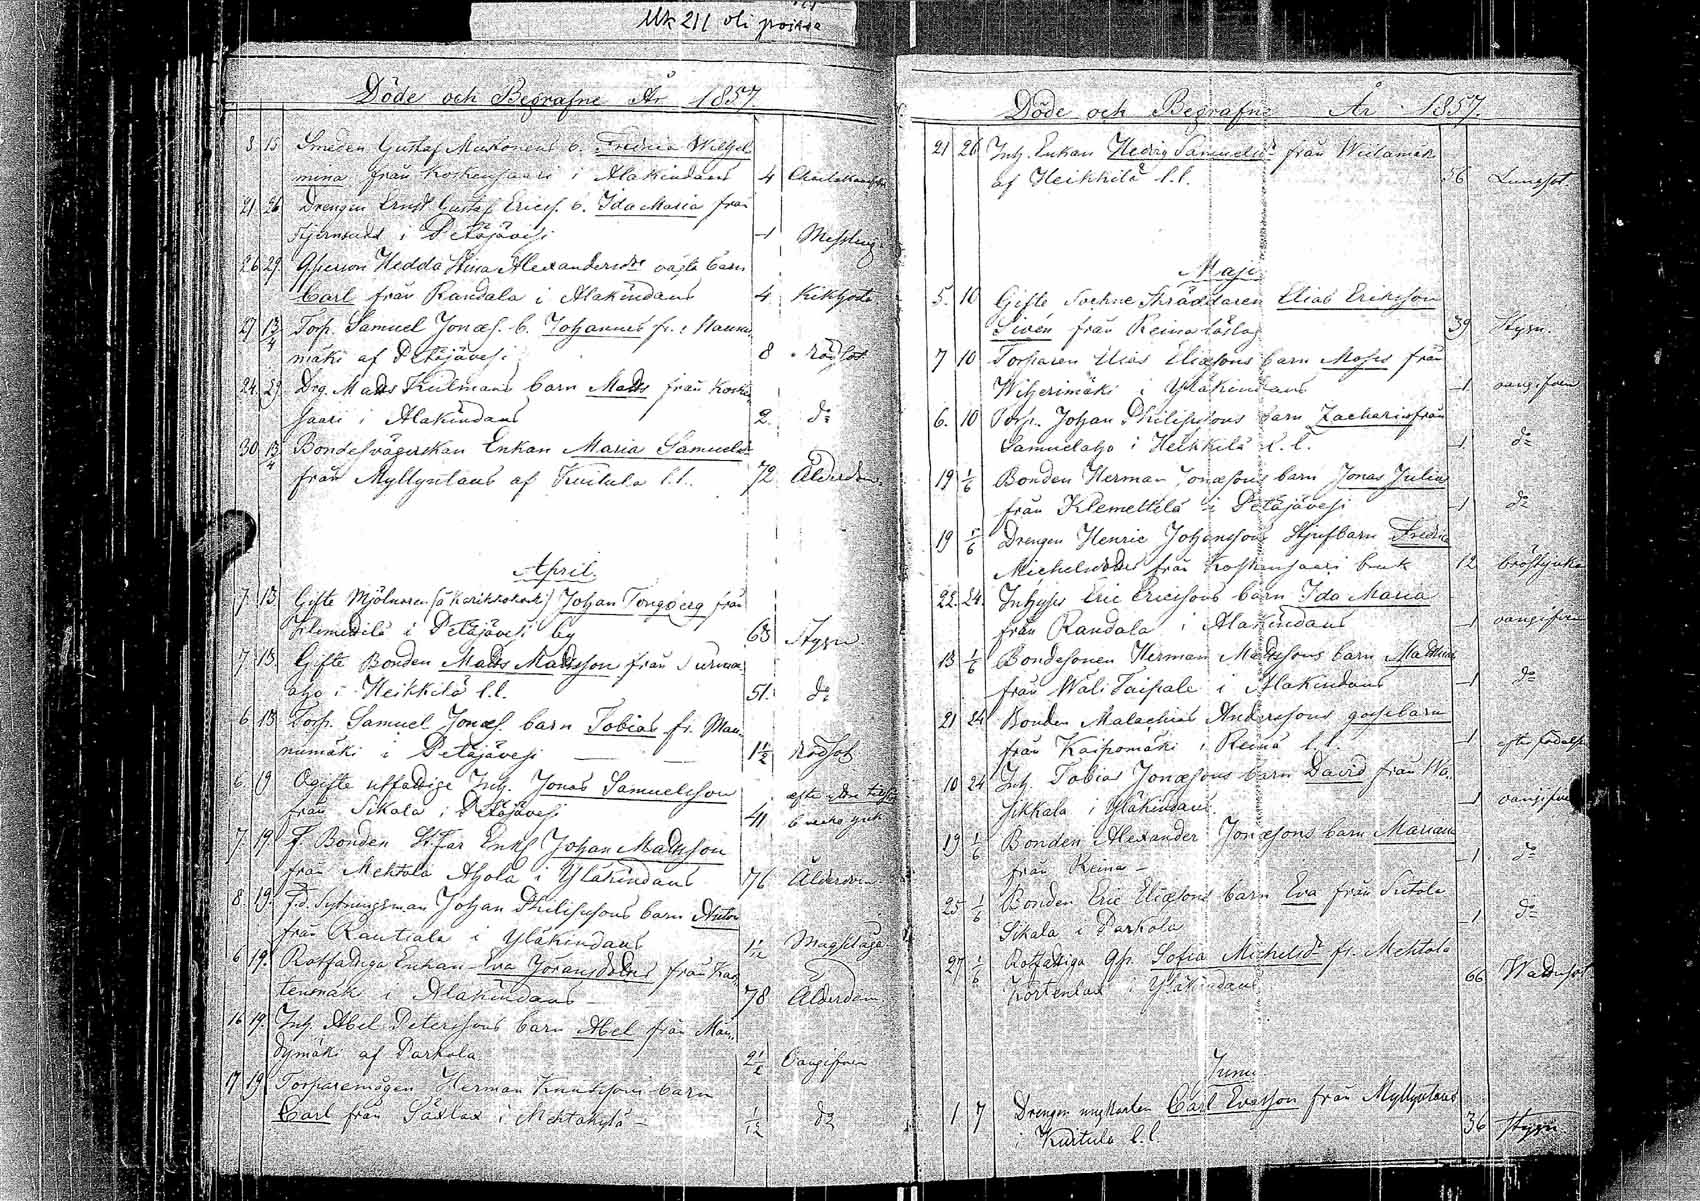 Mk 211 oli poissa
Döde och Begrafne År 1857.
8. 15 Smeden Gustaf Muhonens b. Fredrica Wilhel
mina från Koskensaari i Alakindaus 4
21. 26 Drengen Ernst Gustaf Ericss. b. Ida Maria från
i Petäjävesi 1 Messling
26 29. Qpersson Hedda Stina Alexandersdrs oägta barn
Carl från Randala i Alakindaus 4 Kikhosta
27 13/4 Torp. Samuel Jonæs. b. Johannes fr. Mannu
mäki af Petäjävesi 8 Rödsot
24. 29 Drg. Matts barn Matts från Kosken
saari i Alakindaus 2. do
30 13/4 Bondesvägerskan Enkan Maria Samuelsdr
från Myllyntaus af Kuitula l.l. 72 Ålderdom
April
7. 13. Gifte Mjölnaren Johan Tongberg från
Klemettilä i Petäjävesi by 63 Stygn
7 13. Gifte Bonden Matts Mattsson från
aho i Heikkilä l.l. 51. do
6 13 Torp. Samuel Jonæs. barn Tobias fr. Man
numäki i Petäjävesi 1 1/2 Rödsot
6 19 Ogifte utfattige Inh. Jonas Samuelsson
från Sikala i Petäjävesi 41
7. 19. F. Bonden Enkl Johan Mattsson
från Mehtola Ahola i Yläkindaus 76 Ålderdom
8. 19. F.d. Sytningsman Johan Philipssons barn Anton
från Rautiala i Yläkindaus 1/12 Magplåga
6 19. Rotfattiga Enkan Eva Joransdotter från Kar
tensmäki i Alakindaus 78 Ålderdom
16 19. Inh. Abel Peterssons barn Abel från Män
dymäki af Parkola 2 1/2 Vangifven
17 19 Torparemågen Herman Knutssons barn
Carl från i Mehtokylä 1/12 do
Döde och Begrafne År 1857.
21 26 Inh. Enkan Hedvig Samuelsdr från Wiilamäki
af Heikkilä l.l. 56 Lungsot.
Maji
5. 10 Gifte Sockne Skräddaren Elias Eriksson
Sivén från Reina 39 Stygn.
7 10 Torparen Elias Eliæsons barn Moses från
Wiherimäki i Yläkindaus 1 vangifven
6. 10 Torp. Johan Philipssons barn Zacharias från
Samuelaho i Heikkilä l.l. 1 do
19 1/6 Bonden Herman Jonæsons barn Jonas Julius
från Klemettilä i Petäjävesi 1 do
19 1/6 Drengen Henric Johanssons Styfbarn Fredrica
Michelsdotter från Koskensaari bruk 12 bröstsjuka
22. 24. Inhyses Eric Ericssons barn Ida Maria
från Randala i Alakindaus 1 vangifven
13 1/6 Bondesonen Herman Mattssons barn Matthias
från Wali Taipale i Alakindaus 1 do
21 24 Bonden Malachias Anderssons gossebarn
från Kaipomäki i Reina l.l. 1 efter födelse
10 24 Inh. Tobias Jonæsons barn David från Wä
sikkala i Yläkindaus 1 vangifven
19 1/6 Bonden Alexander Jonæsons barn Mariana
från Reina 1 do
25 1/6 Bonden Eric Eliæsons barn Eva från
Sikala i Parkola 1 do
27 1/6 Rotfattiga Qp. Sofia Michelsdr fr. Mehtola
i Yläkindaus 66 Wattusot
Junii
1 7 Drengen ungkarlen Carl Evasson från Myllyntaus
i Kuitula l.l. 36 Stygn